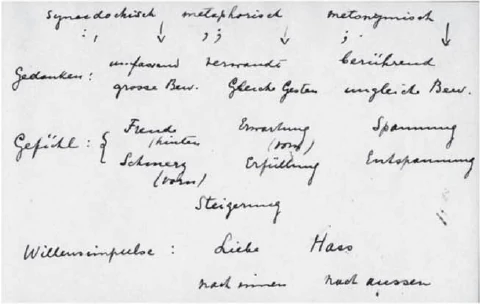 synekdochisch metaphorisch metonymisch
Gedanken: umfassend verwandt berührend
grosse Bew. Gleiche Gesten ungleiche Bew.
Gefühl: { Freude (hinten) Erwartung (vorn) Spannung
Schmerz (vorn) Erfüllung Entspannung
Steigerung
Willensimpulse: Liebe Hass
nach innen nach aussen